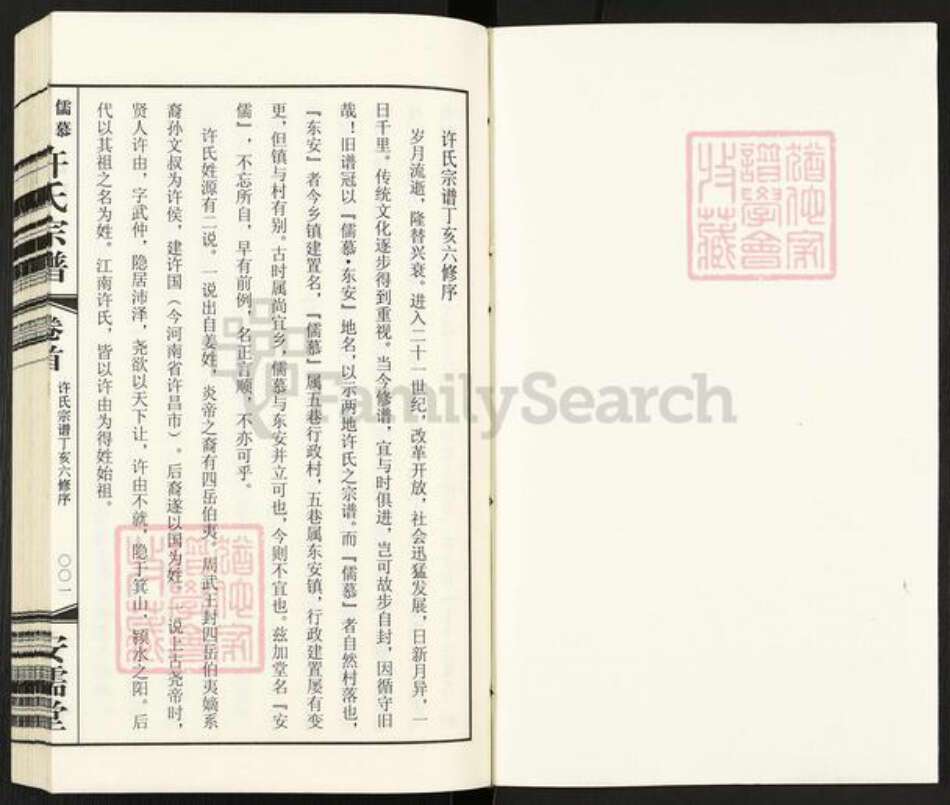 许氏宗谱丁亥六修序
岁月流逝，隆替兴衰。进入二十一世纪，改革开放，社会迅猛发展，日新月异，一
日千里。传统文化逐步得到重视。当今修谱，宜与时俱进，岂可故步自封，因循守旧
哉！旧谱冠以『儒慕·东安』地名，以示两地许氏之宗谱。而『儒慕』者自然村落也，
『东安』者今乡镇建置名，『儒慕』属五巷行政村，五巷属东安镇，行政建置屡有变
更，但镇与村有别。古时属尚宜乡，儒慕与东安并立可也，今则不宜也。兹加堂名『安
儒』，不忘所自，早有前例，名正言顺，不亦可乎。
许氏姓源有二说。一说出自姜姓，炎帝之裔有四岳伯夷。周武王封四岳伯夷嫡系
裔孙文叔为许侯，建许国（今河南省许昌市）。后裔遂以国为姓。一说上古尧帝时，
贤人许由，字武仲，隐居沛泽，尧欲以天下让，许由不就，隐于箕山、颍水之阳。后
代以其祖之名为姓。江南许氏，皆以许由为得姓始祖。
儒慕
许氏宗谱
卷首
许氏宗谱丁亥六修序
〇〇一
安儒堂
猶他家
譜學會
收藏
猶他家
譜學會
收藏
FamilySearch